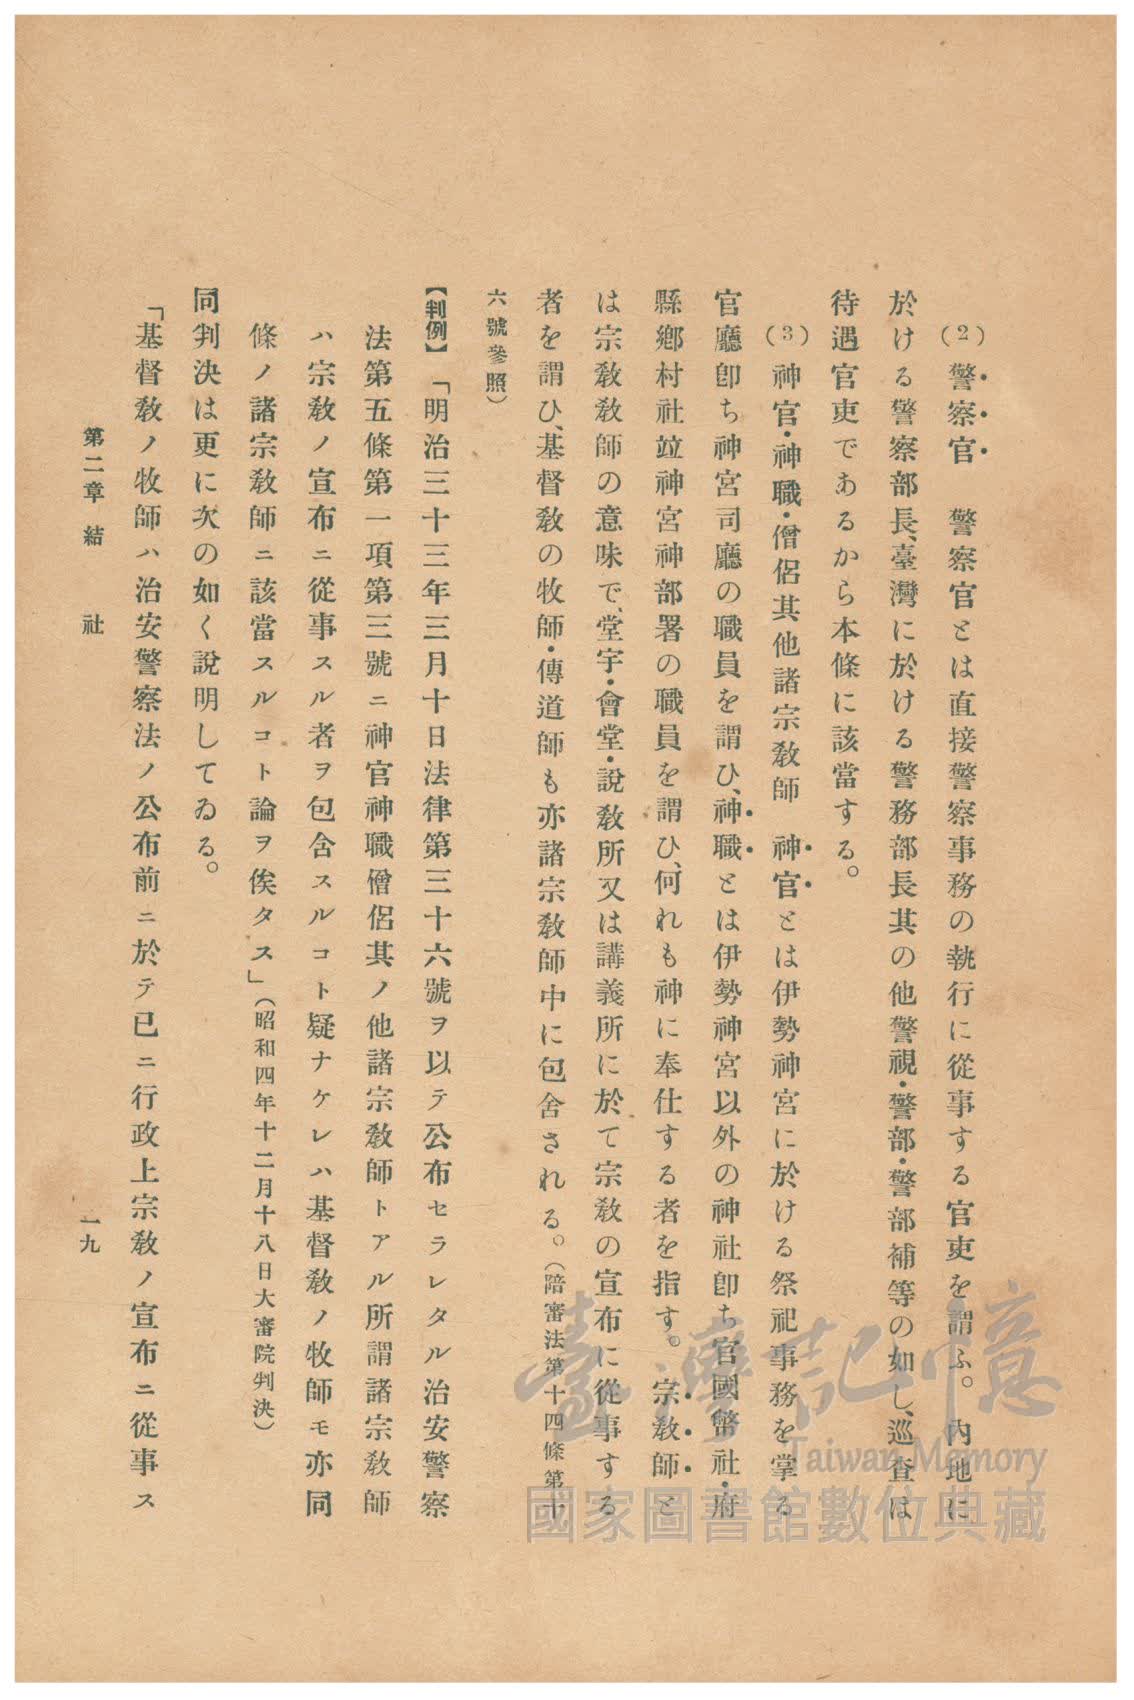 (2) 警察官　警察官とは直接警察事務の執行に從事する官吏を謂ふ。內地に
於ける警察部長、臺灣に於ける警務部長其の他警視・警部・警部補等の如し、巡査は
待遇官吏であるから本條に該當する。
(3) 神官・神職・僧侶其他諸宗敎師　神官とは伊勢神宮に於ける祭祀事務を掌る
官廳卽ち神宮司廳の職員を謂ひ、神職とは伊勢神宮以外の神社卽ち官國幣社・府
縣鄕村社竝神宮神部署の職員を謂ひ、何れも神に奉仕する者を指す。宗敎師と
は宗敎敎師の意味で、堂宇・會堂・說敎所又は講義所に於て宗敎の宣布に從事する
者を謂ひ、基督敎の牧師・傳道師も亦諸宗敎師中に包含される。(陪審法第十四條第十
六號參照)
【判例】「明治三十三年三月十日法律第三十六號ヲ以テ公布セラレタル治安警察
法第五條第一項第三號ニ神官神職僧侶其ノ他諸宗敎師トアル所謂諸宗敎師
ハ宗敎ノ宣布ニ從事スル者ヲ包含スルコト疑ナケレハ基督敎ノ牧師モ亦同
條ノ諸宗敎師ニ該當スルコト論ヲ俟タス」(昭和四年十二月十八日大審院判決)
同判決は更に次の如く說明してゐる。
「基督敎ノ牧師ハ治安警察法ノ公布前ニ於テ已ニ行政上宗敎ノ宣布ニ從事ス
第二章　結　社
一九
臺灣記憶
Taiwan Memory
國家圖書館數位典藏